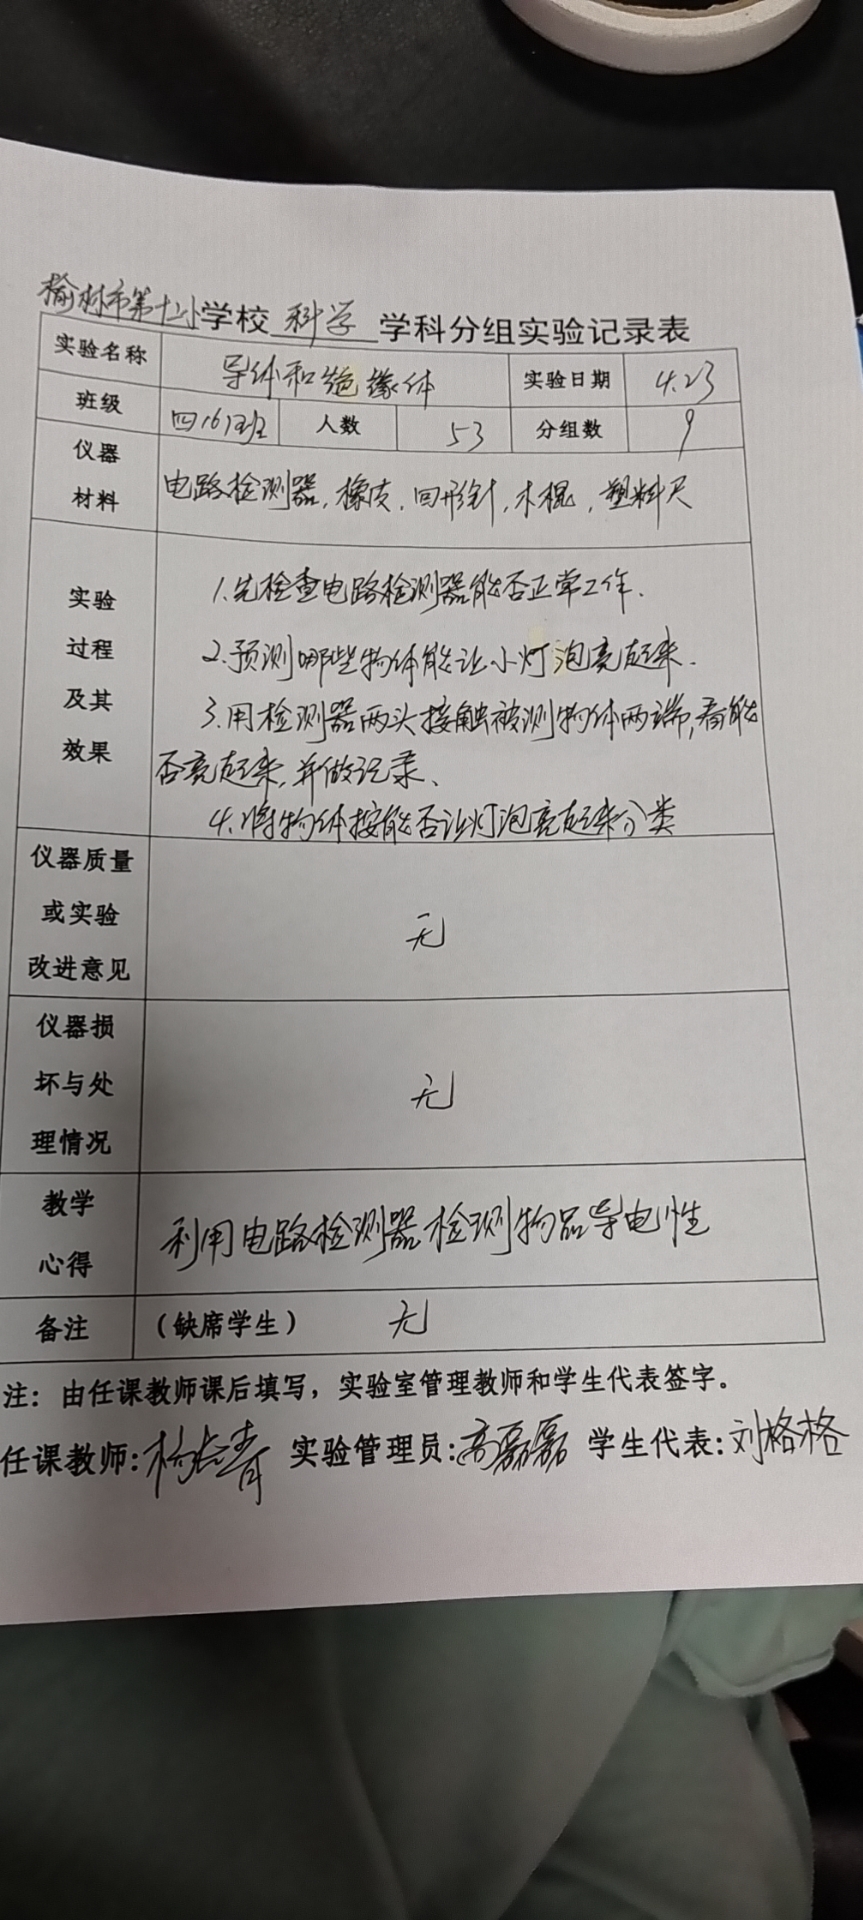 榆林市第十二小学校 科学 学科分组实验记录表
实验名称 导体和绝缘体 实验日期 4.23
班级 四(6)班 人数 53 分组数 9
仪器材料 电路检测器,橡皮,回形针,木棍,塑料尺
实验过程及其效果
1.先检查电路检测器能否正常工作.
2.预测哪些物体能让小灯泡亮起来.
3.用检测器两头接触被测物体两端,看能
否亮起来,并做记录、
4.将物体按能否让灯泡亮起来分类
仪器质量或实验改进意见 无
仪器损坏与处理情况 无
教学心得 利用电路检测器检测物品导电性
备注 (缺席学生) 无
注:由任课教师课后填写,实验室管理教师和学生代表签字。
任课教师:杨长青 实验管理员:高磊磊 学生代表:刘格格